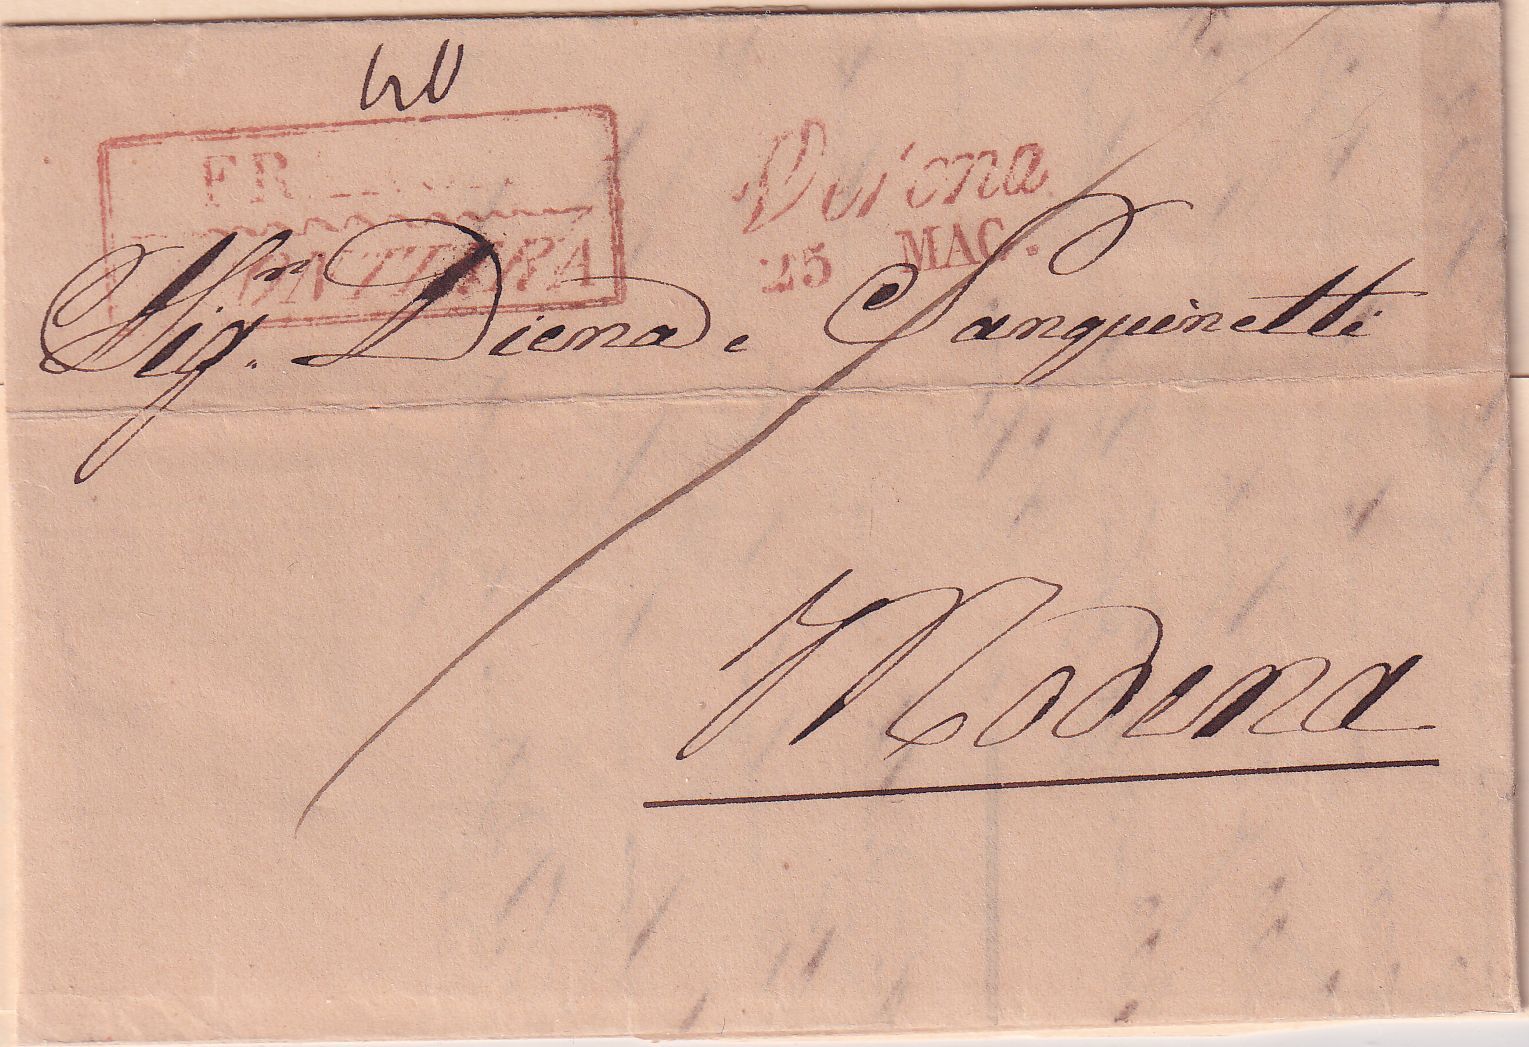 40
FR
ONTIERA
Verona
25 MAG.
Sig.ri Diena e Sanguinetti
Modena